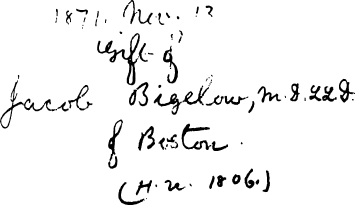 1871. Nov. 13
Gift of
Jacob Bigelow, M.D. LL.D.
of Boston.
(H. U. 1806.)